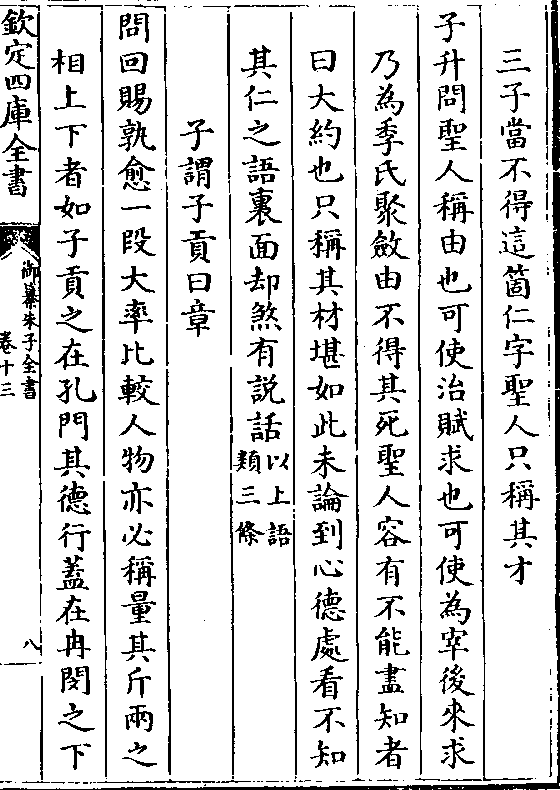 三子當不得這箇仁字聖人只稱其才
子升問聖人稱由也可使治賦求也可使為宰後來求
乃為季氏聚斂由不得其死聖人容有不能盡知者
曰大約也只稱其材堪如此未論到心德處看不知
其仁之語裏面却煞有説話以上語類三條
子謂子貢曰章
問回賜孰愈一段大率比較人物亦必稱量其斤兩之
相上下者如子貢之在孔門其德行蓋在冉閔之下
欽定四庫全書
御纂朱子全書
卷十三
八